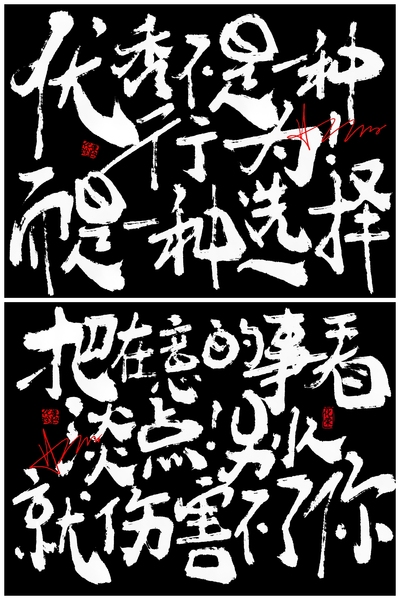 优秀不是一种
行为!
而是一种选择
把在意的事看
淡点!别人
就伤害不了你